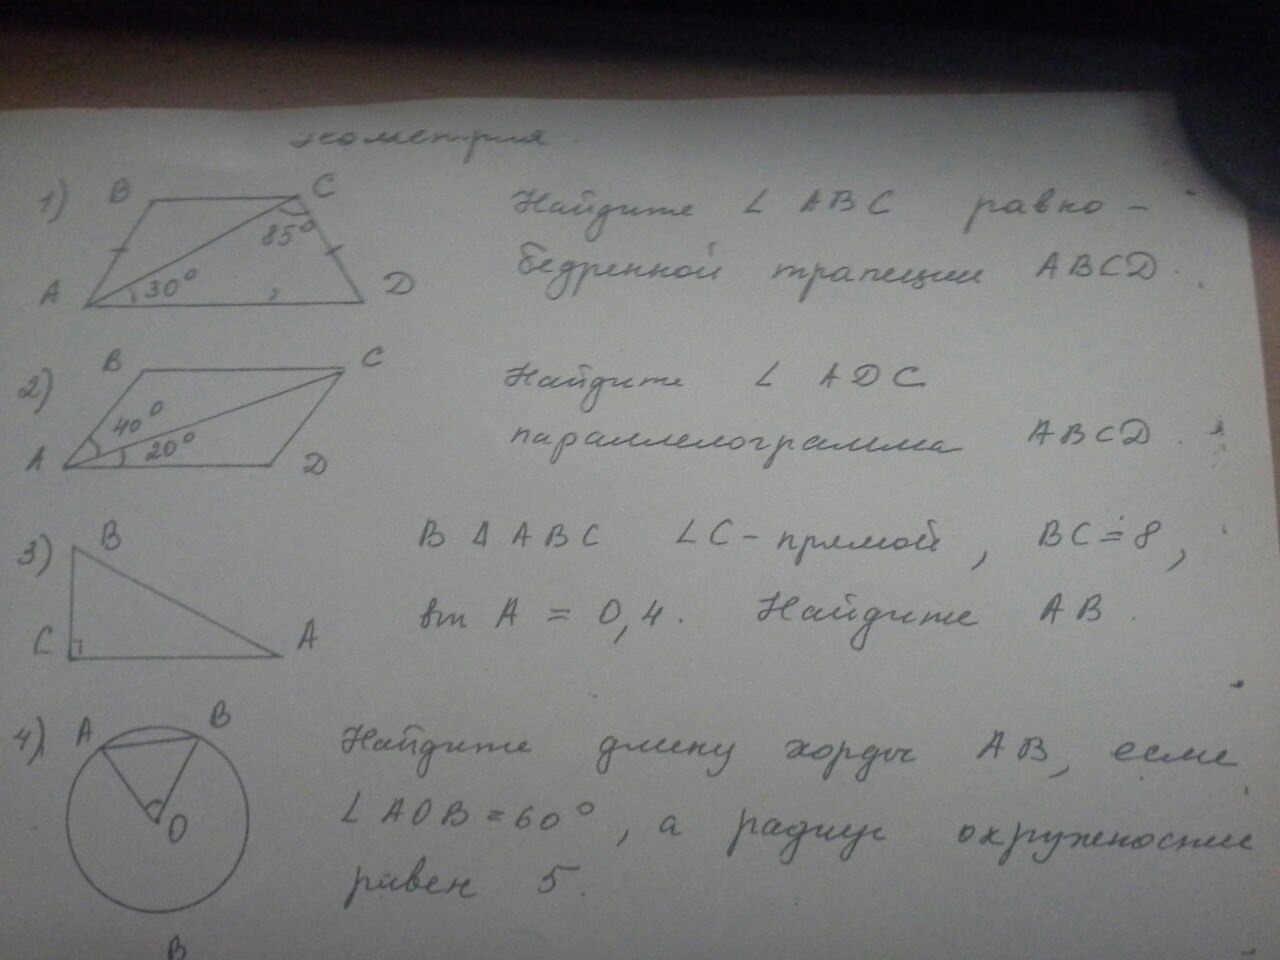 геометрия
1) B C 85° 30° A D Найдите ∠ ABC равно-
бедренной трапеции ABCD.
2) B C 40° 20° A D Найдите ∠ ADC
параллелограмма ABCD.
3) B C A В Δ ABC ∠C - прямой, BC = 8,
sin A = 0,4. Найдите AB.
4) A B O Найдите длину хорды AB, если
∠AOB = 60°, а радиус окружности
равен 5.
B